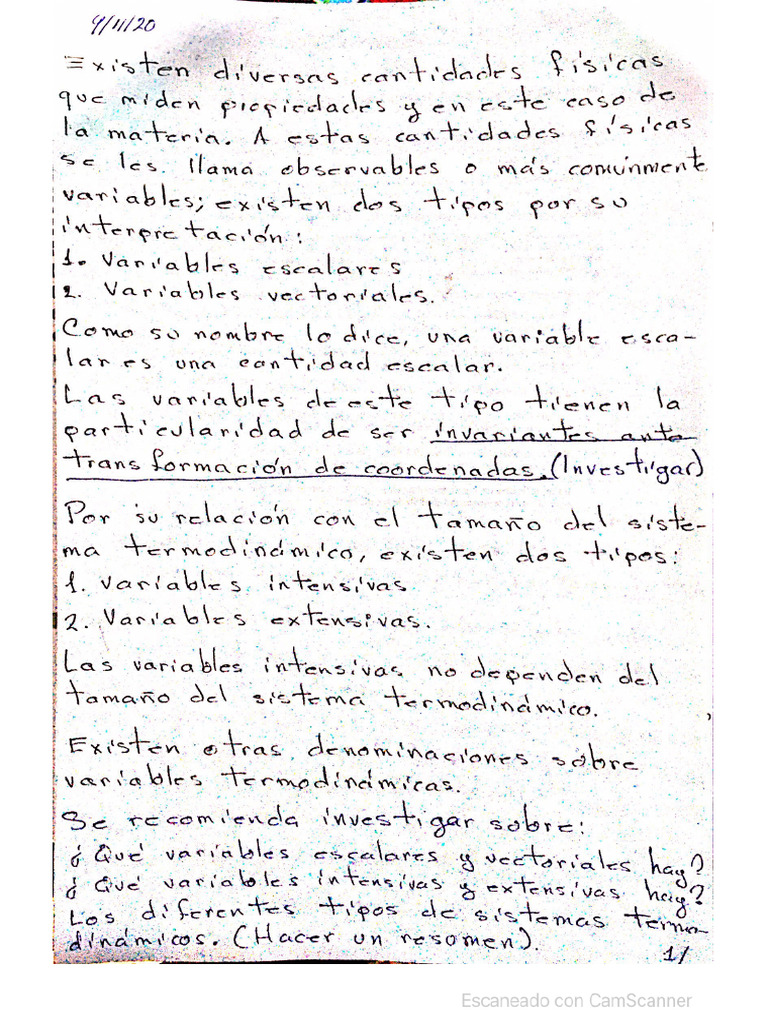 9/11/20
Existen diversas cantidades físicas
que miden propiedades y en este caso de
la materia. A estas cantidades físicas
se les llama observables o más comúnmente
variables; existen dos tipos por su
interpretación:
1. Variables escalares
2. Variables vectoriales.
Como su nombre lo dice, una variable esca-
lar es una cantidad escalar.
Las variables de este tipo tienen la
particularidad de ser invariantes ante
transformación de coordenadas. (Investigar)
Por su relación con el tamaño del siste-
ma termodinámico, existen dos tipos:
1. Variables intensivas
2. Variables extensivas.
Las variables intensivas no dependen del
tamaño del sistema termodinámico.
Existen otras denominaciones sobre
variables termodinámicas.
Se recomienda investigar sobre:
¿Qué variables escalares y vectoriales hay?
¿Qué variables intensivas y extensivas hay?
Los diferentes tipos de sistemas termo-
dinámicos. (Hacer un resumen).
1/
Escaneado con CamScanner